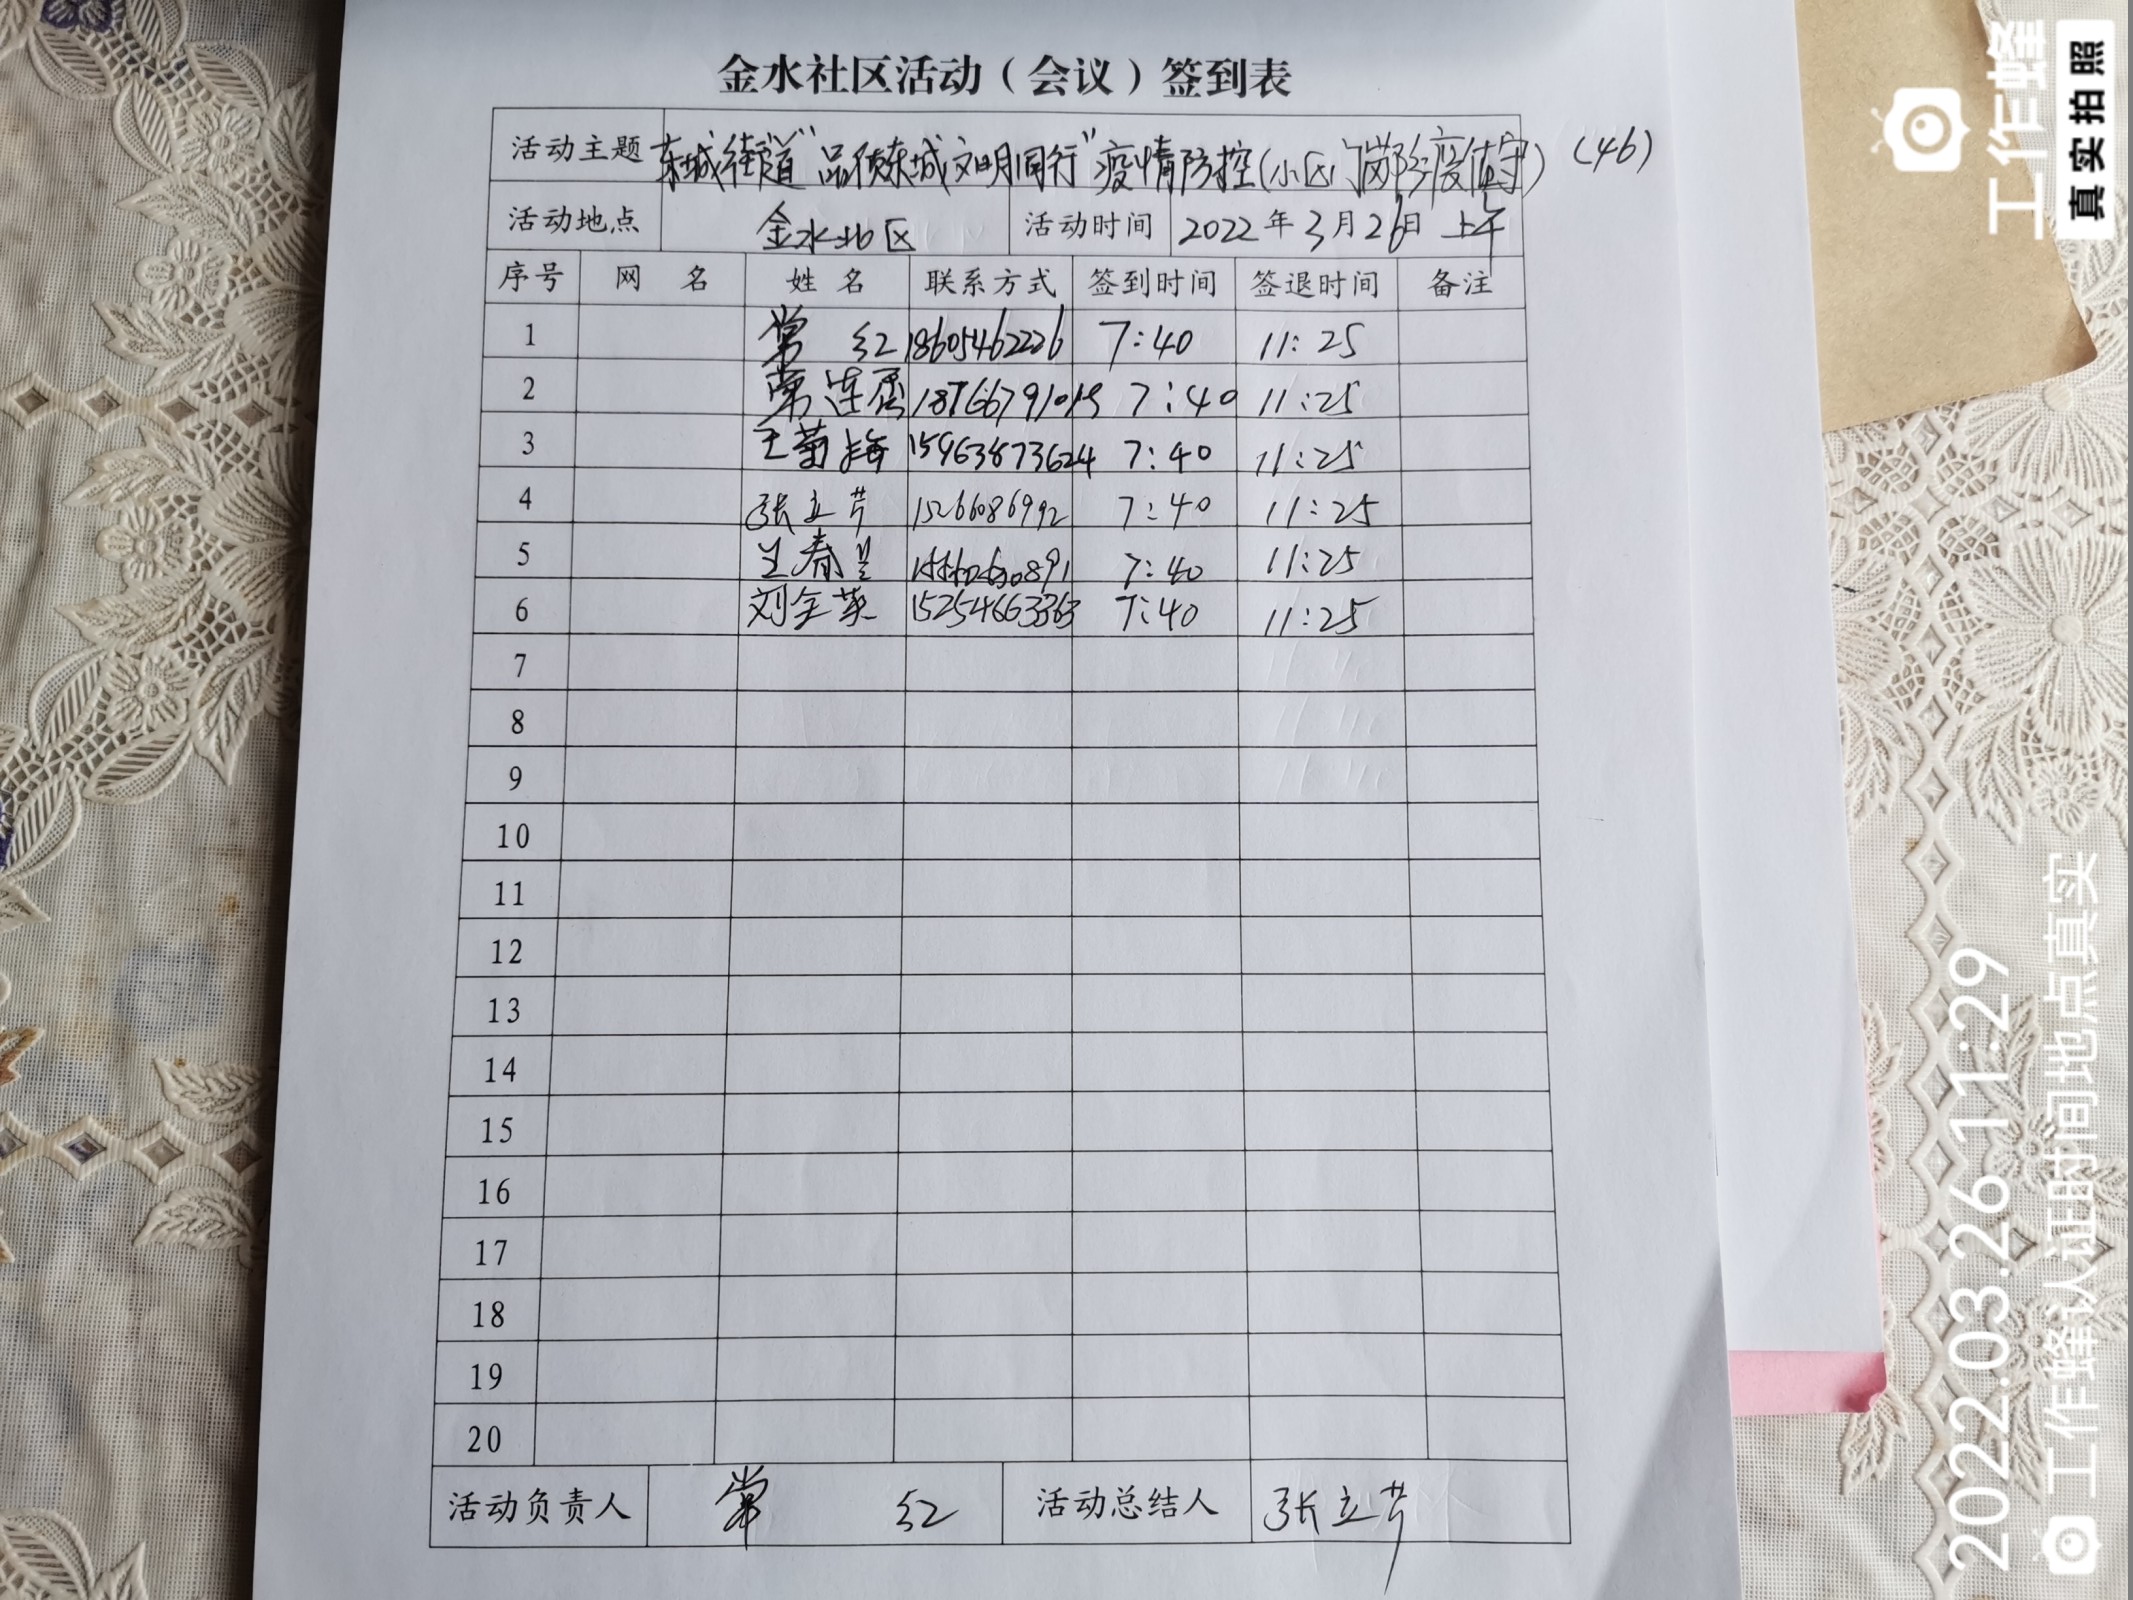 金水社区活动（会议）签到表
活动主题 东城街道“品质东城文明同行”疫情防控(小区门岗防疫值守) (46)
活动地点 金水北区 活动时间 2022年3月26日 上午
序号 网 名 姓 名 联系方式 签到时间 签退时间 备注
1 常 红 18605462226 7:40 11:25
2 常连 18766791019 7:40 11:25
3 王菊梅 15963873624 7:40 11:25
4 张立芹 15266086992 7:40 11:25
5 王春 7:40 11:25
6 刘全英 15254663363 7:40 11:25
7
8
9
10
11
12
13
14
15
16
17
18
19
20
活动负责人 常 红 活动总结人 张立芹
工作蜂
真实拍照
2022.03.26 11:29
工作蜂认证时间地点真实